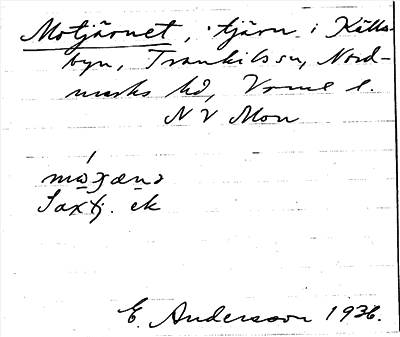 Motjärnet, tjärn i Källs-
byn, Trankils sn, Nord-
marks hd, Vrml l.
N V Mon
Saxtj. ek
E. Andersson 1936.